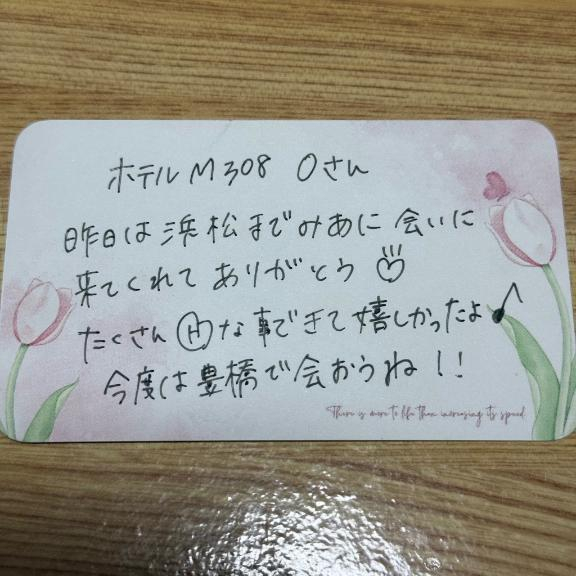 ホテルM308 Oさん
昨日は浜松までみあに会いに
来てくれてありがとう♡
たくさんⒽな事できて嬉しかったよ♪
今度は豊橋で会おうね!!
There is more to life than increasing its speed